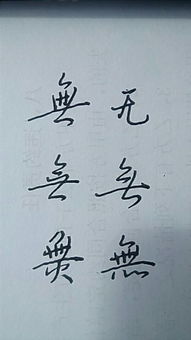 無 无
無 無
無 無